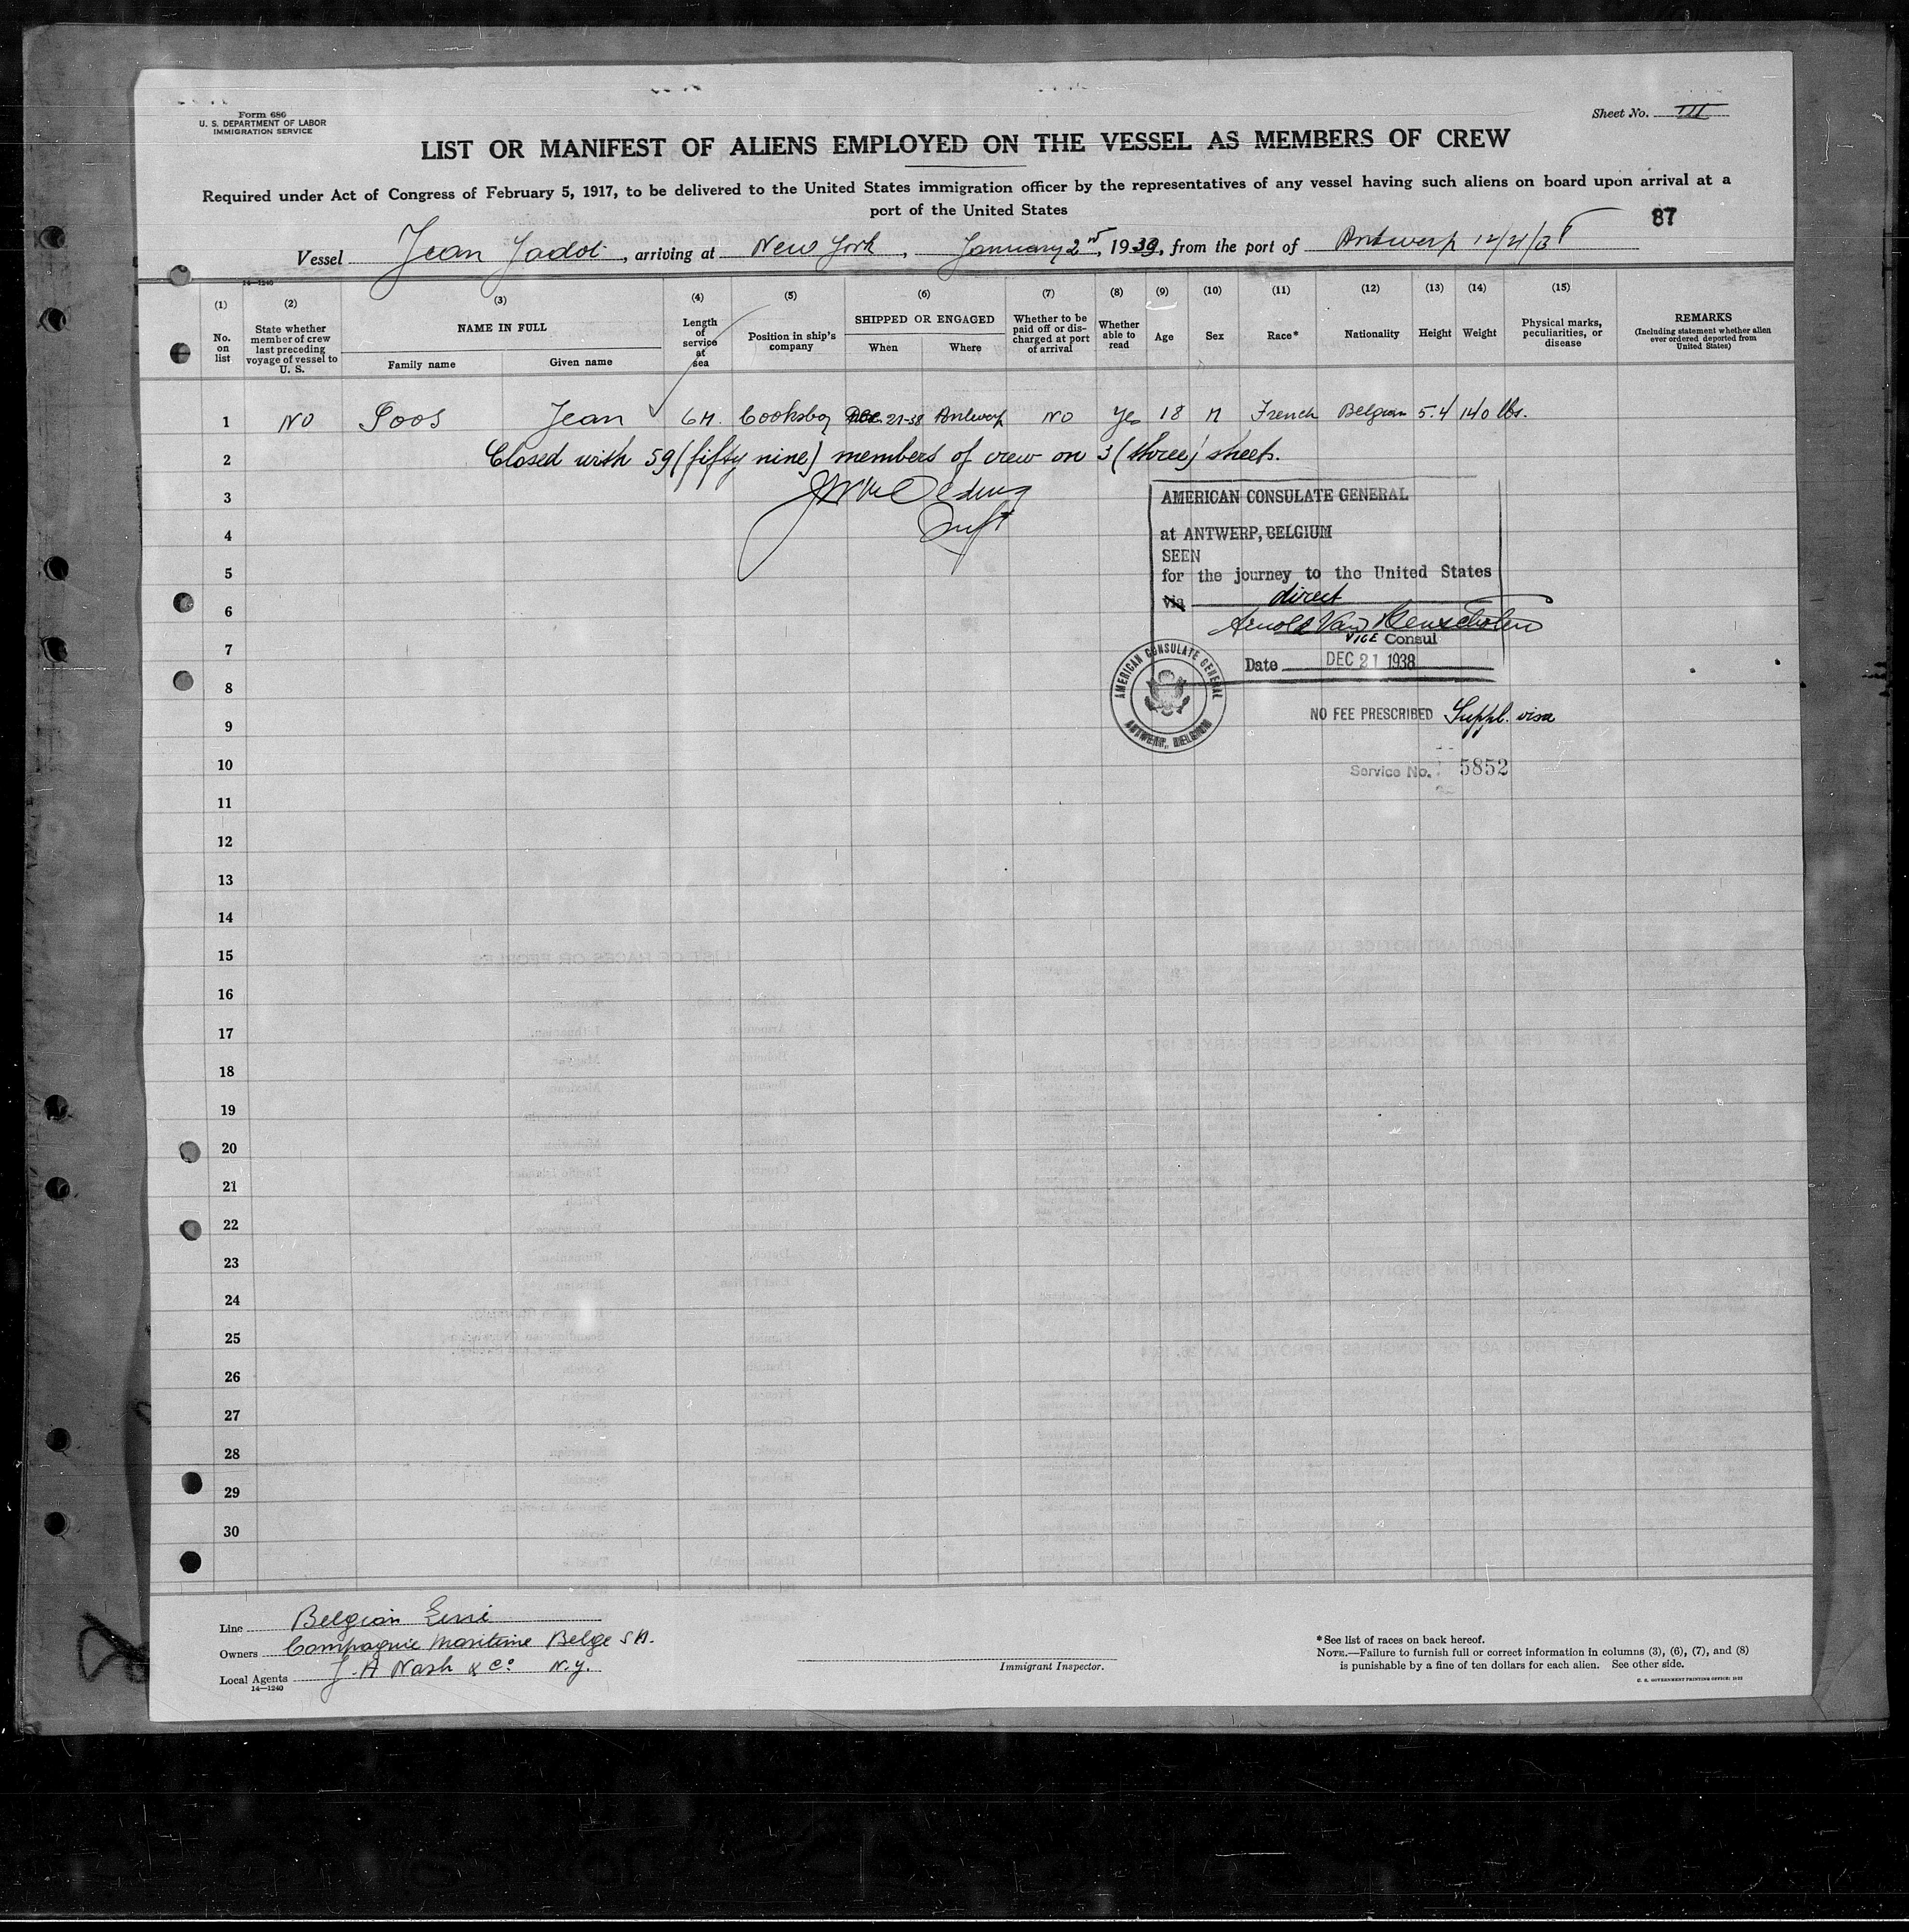 Form 686
U. S. DEPARTMENT OF LABOR
IMMIGRATION SERVICE
Sheet No. III
LIST OR MANIFEST OF ALIENS EMPLOYED ON THE VESSEL AS MEMBERS OF CREW
Required under Act of Congress of February 5, 1917, to be delivered to the United States immigration officer by the representatives of any vessel having such aliens on board upon arrival at a
port of the United States
87
Vessel Jean Jadot, arriving at New York, January 2nd, 1939, from the port of Antwerp 12/21/38
14—1240
(1) (2) (3) (4) (5) (6) (7) (8) (9) (10) (11) (12) (13) (14) (15)
No. on list
State whether member of crew last preceding voyage of vessel to U. S.
NAME IN FULL
Family name
Given name
Length of service at sea
Position in ship's company
SHIPPED OR ENGAGED
When
Where
Whether to be paid off or discharged at port of arrival
Whether able to read
Age
Sex
Race*
Nationality
Height
Weight
Physical marks, peculiarities, or disease
REMARKS
(Including statement whether alien ever ordered deported from United States)
1 No Joos Jean 6 M. Cooksboy Dec. 21-38 Antwerp No Yes 18 M French Belgian 5.4 140 lbs.
2 Closed with 59 (fifty nine) members of crew on 3 (three) sheets.
3
4
5
6
7
8
9
10
11
12
13
14
15
16
17
18
19
20
21
22
23
24
25
26
27
28
29
30
AMERICAN CONSULATE GENERAL
at ANTWERP, BELGIUM
SEEN
for the journey to the United States
via direct
Arnold Van
VICE Consul
Date DEC 21 1938
AMERICAN CONSULATE GENERAL
ANTWERP, BELGIUM
NO FEE PRESCRIBED Suppl. visa
Service No. 5852
Line Belgian Line
Owners Compagnie Maritime Belge S.A.
Local Agents J. A Nash & Co. N.Y.
14—1240
Immigrant Inspector.
*See list of races on back hereof.
NOTE.—Failure to furnish full or correct information in columns (3), (6), (7), and (8)
is punishable by a fine of ten dollars for each alien. See other side.
U. S. GOVERNMENT PRINTING OFFICE: